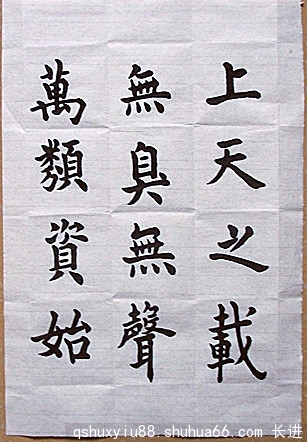 上天之載
無臭無聲
萬類資始
qshuxyiu88.shuhua66.com 长进